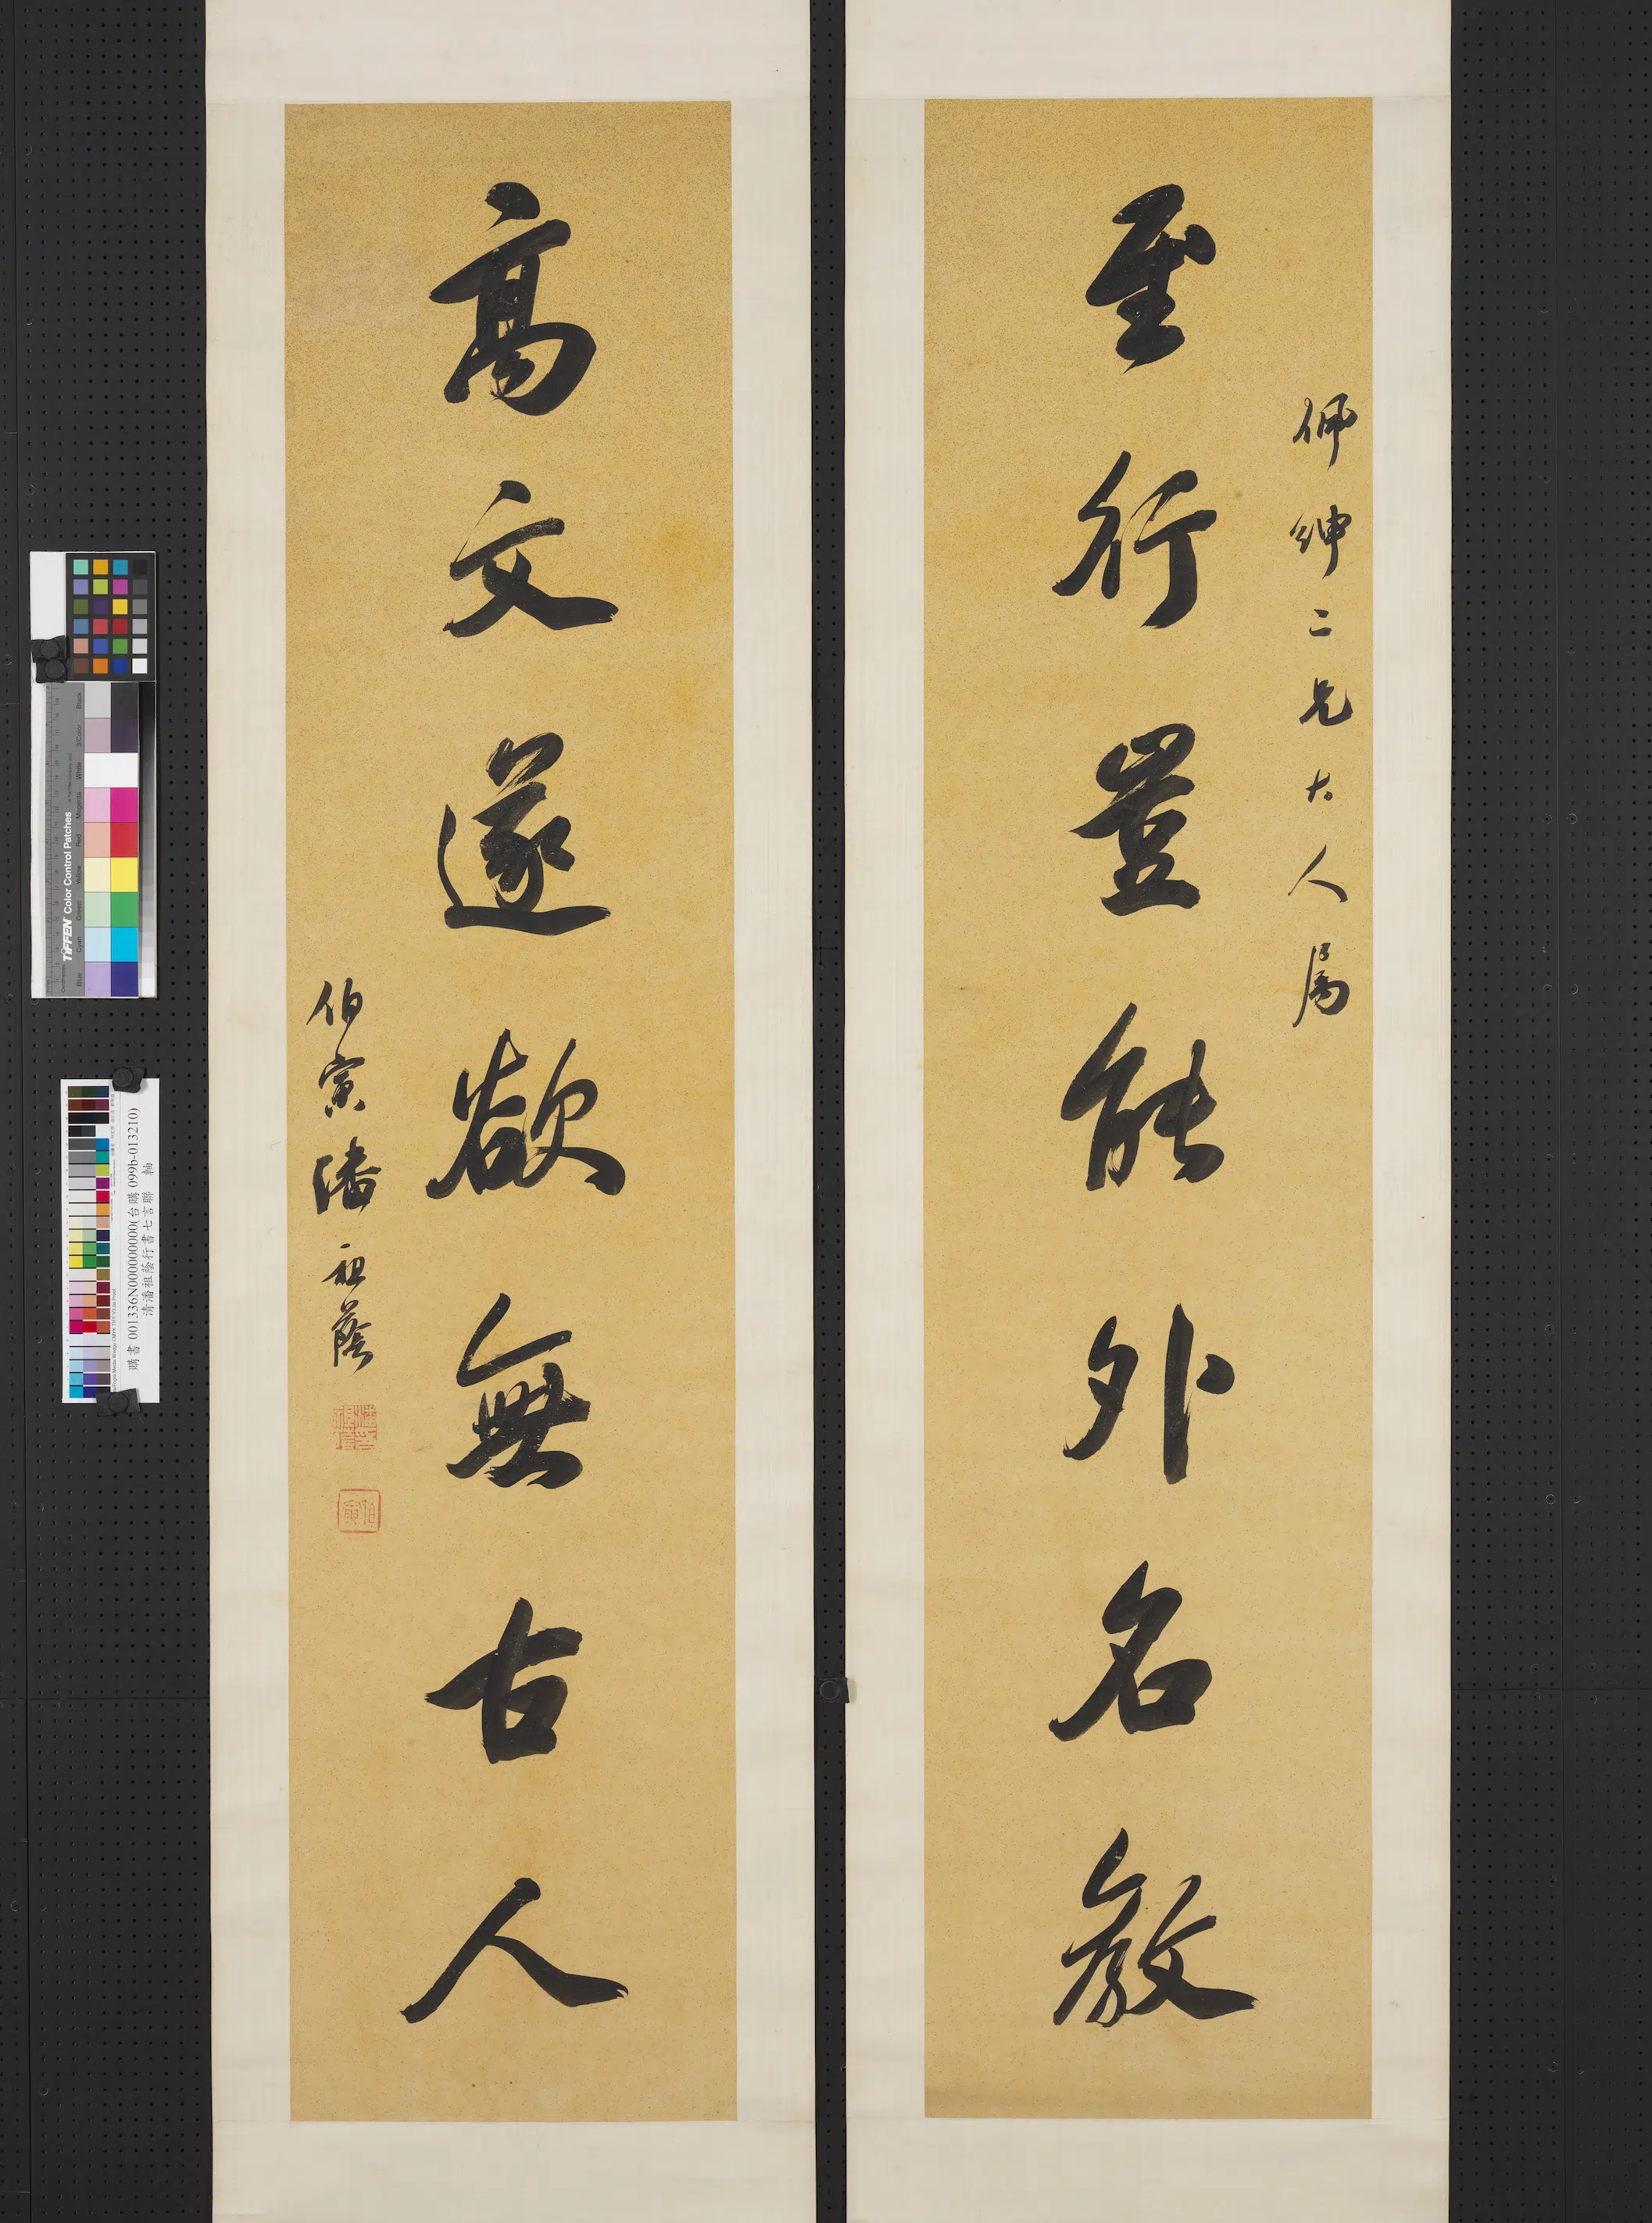 至行豈能外名教
佩紳二兄大人屬
高文遂欲無古人
伯寅潘祖蔭
潘祖蔭
伯寅
TIFFEN Color Control Patches
Blue
Cyan
Green
Yellow
Red
Magenta
White
3/Color
Black
購書 001336N000000000(台購 099b-013210)
清潘祖蔭行書七言聯 軸